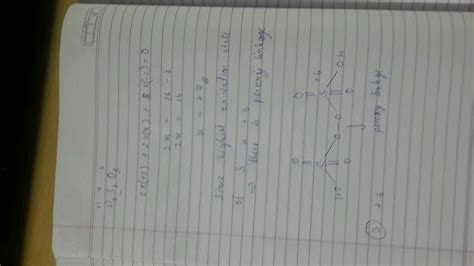 +1 x -2
H₂S₂O₈
2x(+1) + 2x(x) + 8x(-2) = 0
2x = 16 - 2
2x = 14
x = +7
Since highest oxidation state
of S is +6
→ there is peroxy linkage
O O +6
HO S O O S OH
O O
peroxy linkage
S +6